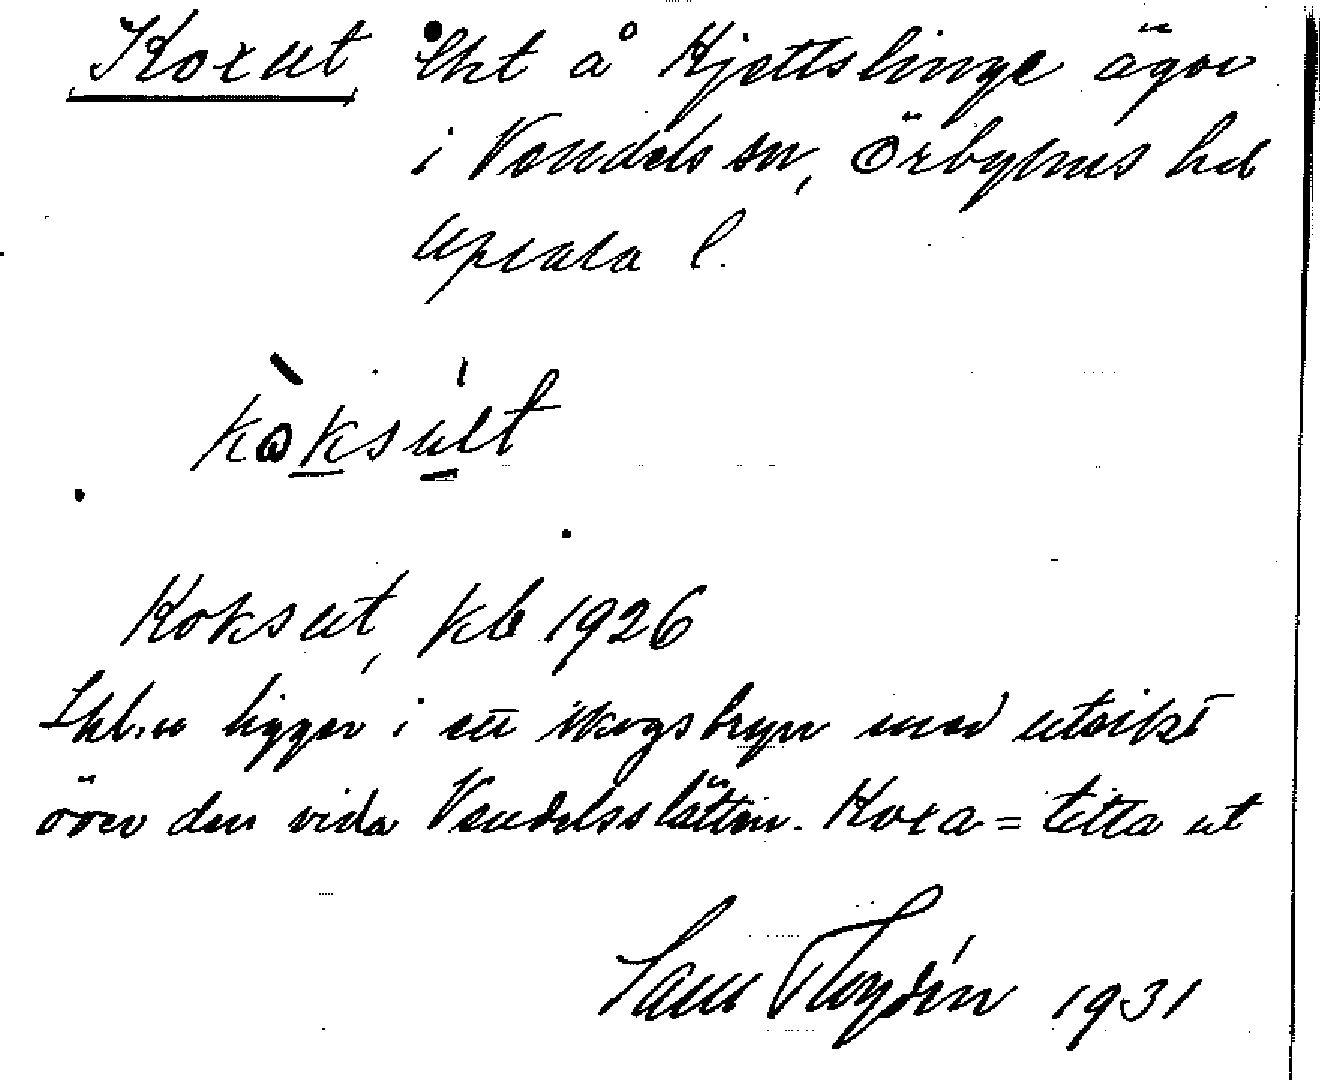 Koxut lht å Kjettslinge ägor
i Vendels sn, Örbyhus hd
Upsala l.
kòksút
Koksut, kb 1926
Lht.n ligger i ett skogsbryn med utsikt
över den vida Vendelsslätten. Koxa = titta ut
1931